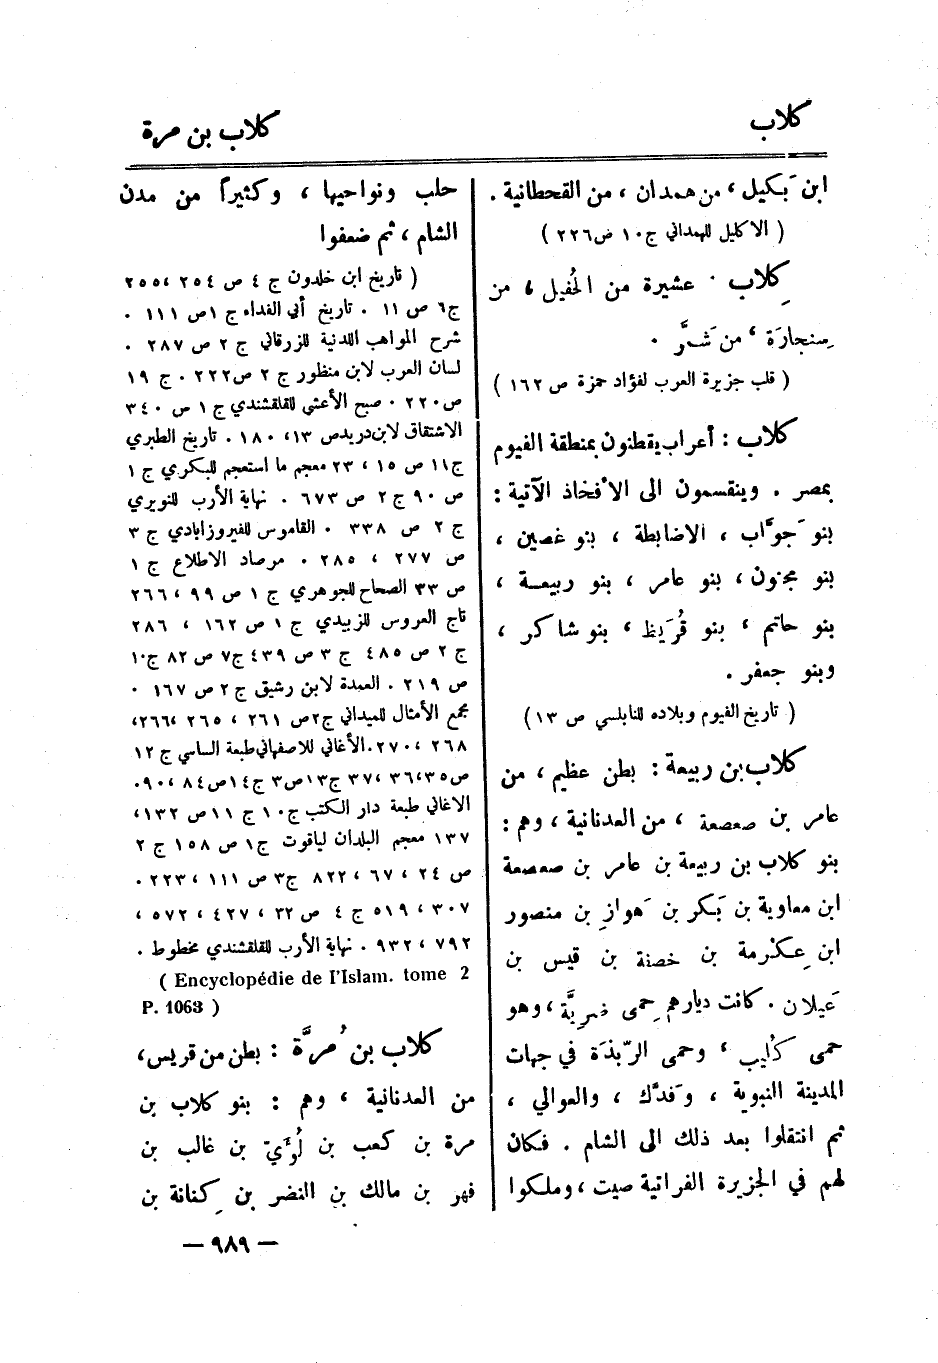 كلاب
كلاب بن مرة
ابن بَكيل ، من همدان ، من القحطانية .
( الاكليل للهمداني ج ١٠ ص ٢٢٦ )
كِلاب : عشيرة من الحُفيل ، من
سِنجارَة ، من شمَّر .
( قلب جزيرة العرب لفؤاد حمزة ص ١٦٢ )
كلاب : أعراب يقطنون بمنطقة الفيوم
بمصر . وينقسمون الى الأفخاذ الآتية :
بنو جوَّاب ، الاضابطة ، بنو غصين ،
بنو مجنون ، بنو عامر ، بنو ربيعة ،
بنو حاتم ، بنو قُرَيظ ، بنو شاكر ،
وبنو جعفر .
( تاريخ الفيوم وبلاده للنابلسي ص ١٣ )
كلاب بن ربيعة : بطن عظيم ، من
عامر بن صعصعة ، من العدنانية ، وهم :
بنو كلاب بن ربيعة بن عامر بن صعصعة
ابن معاوية بن بَكر بن هَوازِن بن منصور
ابن عِكْرمة بن خصفة بن قيس بن
عَيلان . كانت ديارهم حِمى ضَرِيَّة ، وهو
حمى كُلَيب ، وحمى الرّبَذَة في جهات
المدينة النبوية ، وفَدَك ، والعوالي ،
ثم انتقلوا بعد ذلك الى الشام . فكان
لهم في الجزيرة الفراتية صيت ، وملكوا
حلب ونواحيها ، وكثيراً من مدن
الشام ، ثم ضعفوا
( تاريخ ابن خلدون ج ٤ ص ٢٥٤ ، ٢٥٥
ج٦ ص ١١ . تاريخ أبي الفداء ج ١ ص ١١١ .
شرح المواهب اللدنية للزرقاني ج ٢ ص ٢٨٧ .
لسان العرب لابن منظور ج ٢ ص ٢٢٢ . ج ١٩
ص ٢٢٠ . صبح الأعشى للقلقشندي ج ١ ص ٣٤٠
الاشتقاق لابن دريد ص ١٣ ، ١٨٠ . تاريخ الطبري
ج١١ ص ١٥ ، ٢٣ معجم ما استعجم للبكري ج ١
ص ٩٠ ج ٢ ص ٦٧٣ . نهاية الأرب للنويري
ج ٢ ص ٣٣٨ . القاموس للفيروزابادي ج ٣
ص ٢٧٧ ، ٢٨٥ . مرصاد الاطلاع ج ١
ص ٣٣ الصحاح للجوهري ج ١ ص ٩٩ ، ٢٦٦
تاج العروس للزبيدي ج ١ ص ١٦٢ ، ٢٨٦
ج ٢ ص ٤٨٥ ج ٣ ص ٤٣٩ ج٧ ص ٨٢ ج١٠
ص ٢١٩ . العمدة لابن رشيق ج ٢ ص ١٦٧ .
مجمع الأمثال للميداني ج٢ص ٢٦١ ، ٢٦٥ ،٢٦٦،
٢٦٨ ،٢٧٠. الأغاني للاصفهاني طبعة الساسي ج ١٢
ص٣٥،٣٦ ،٣٧ ج١٣ص٣ ج١٤ص٨٤ ،٩٠.
الاغاني طبعة دار الكتب ج١٠ ج ١١ ص ١٣٢،
١٣٧ معجم البلدان لياقوت ج١ ص ١٥٨ ج ٢
ص ٢٤ ، ٦٧ ، ٨٢٢ ج٣ ص ١١١ ، ٢٢٣ .
٣٠٧ ، ٥١٩ ج ٤ ص ٣٢ ، ٤٢٧ ، ٥٧٢ ،
٧٩٢ ، ٩٣٢ . نهاية الأرب للقلقشندي مخطوط .
( Encyclopédie de l'Islam. tome 2
P. 1063 )
كلاب بن مُرَّة : بطن من قريس،
من العدنانية ، وهم : بنو كلاب بن
مرة بن كعب بن لُؤَيّ بن غالب بن
فهر بن مالك بن النضر بن كِنانة بن
— ٩٨٩ —